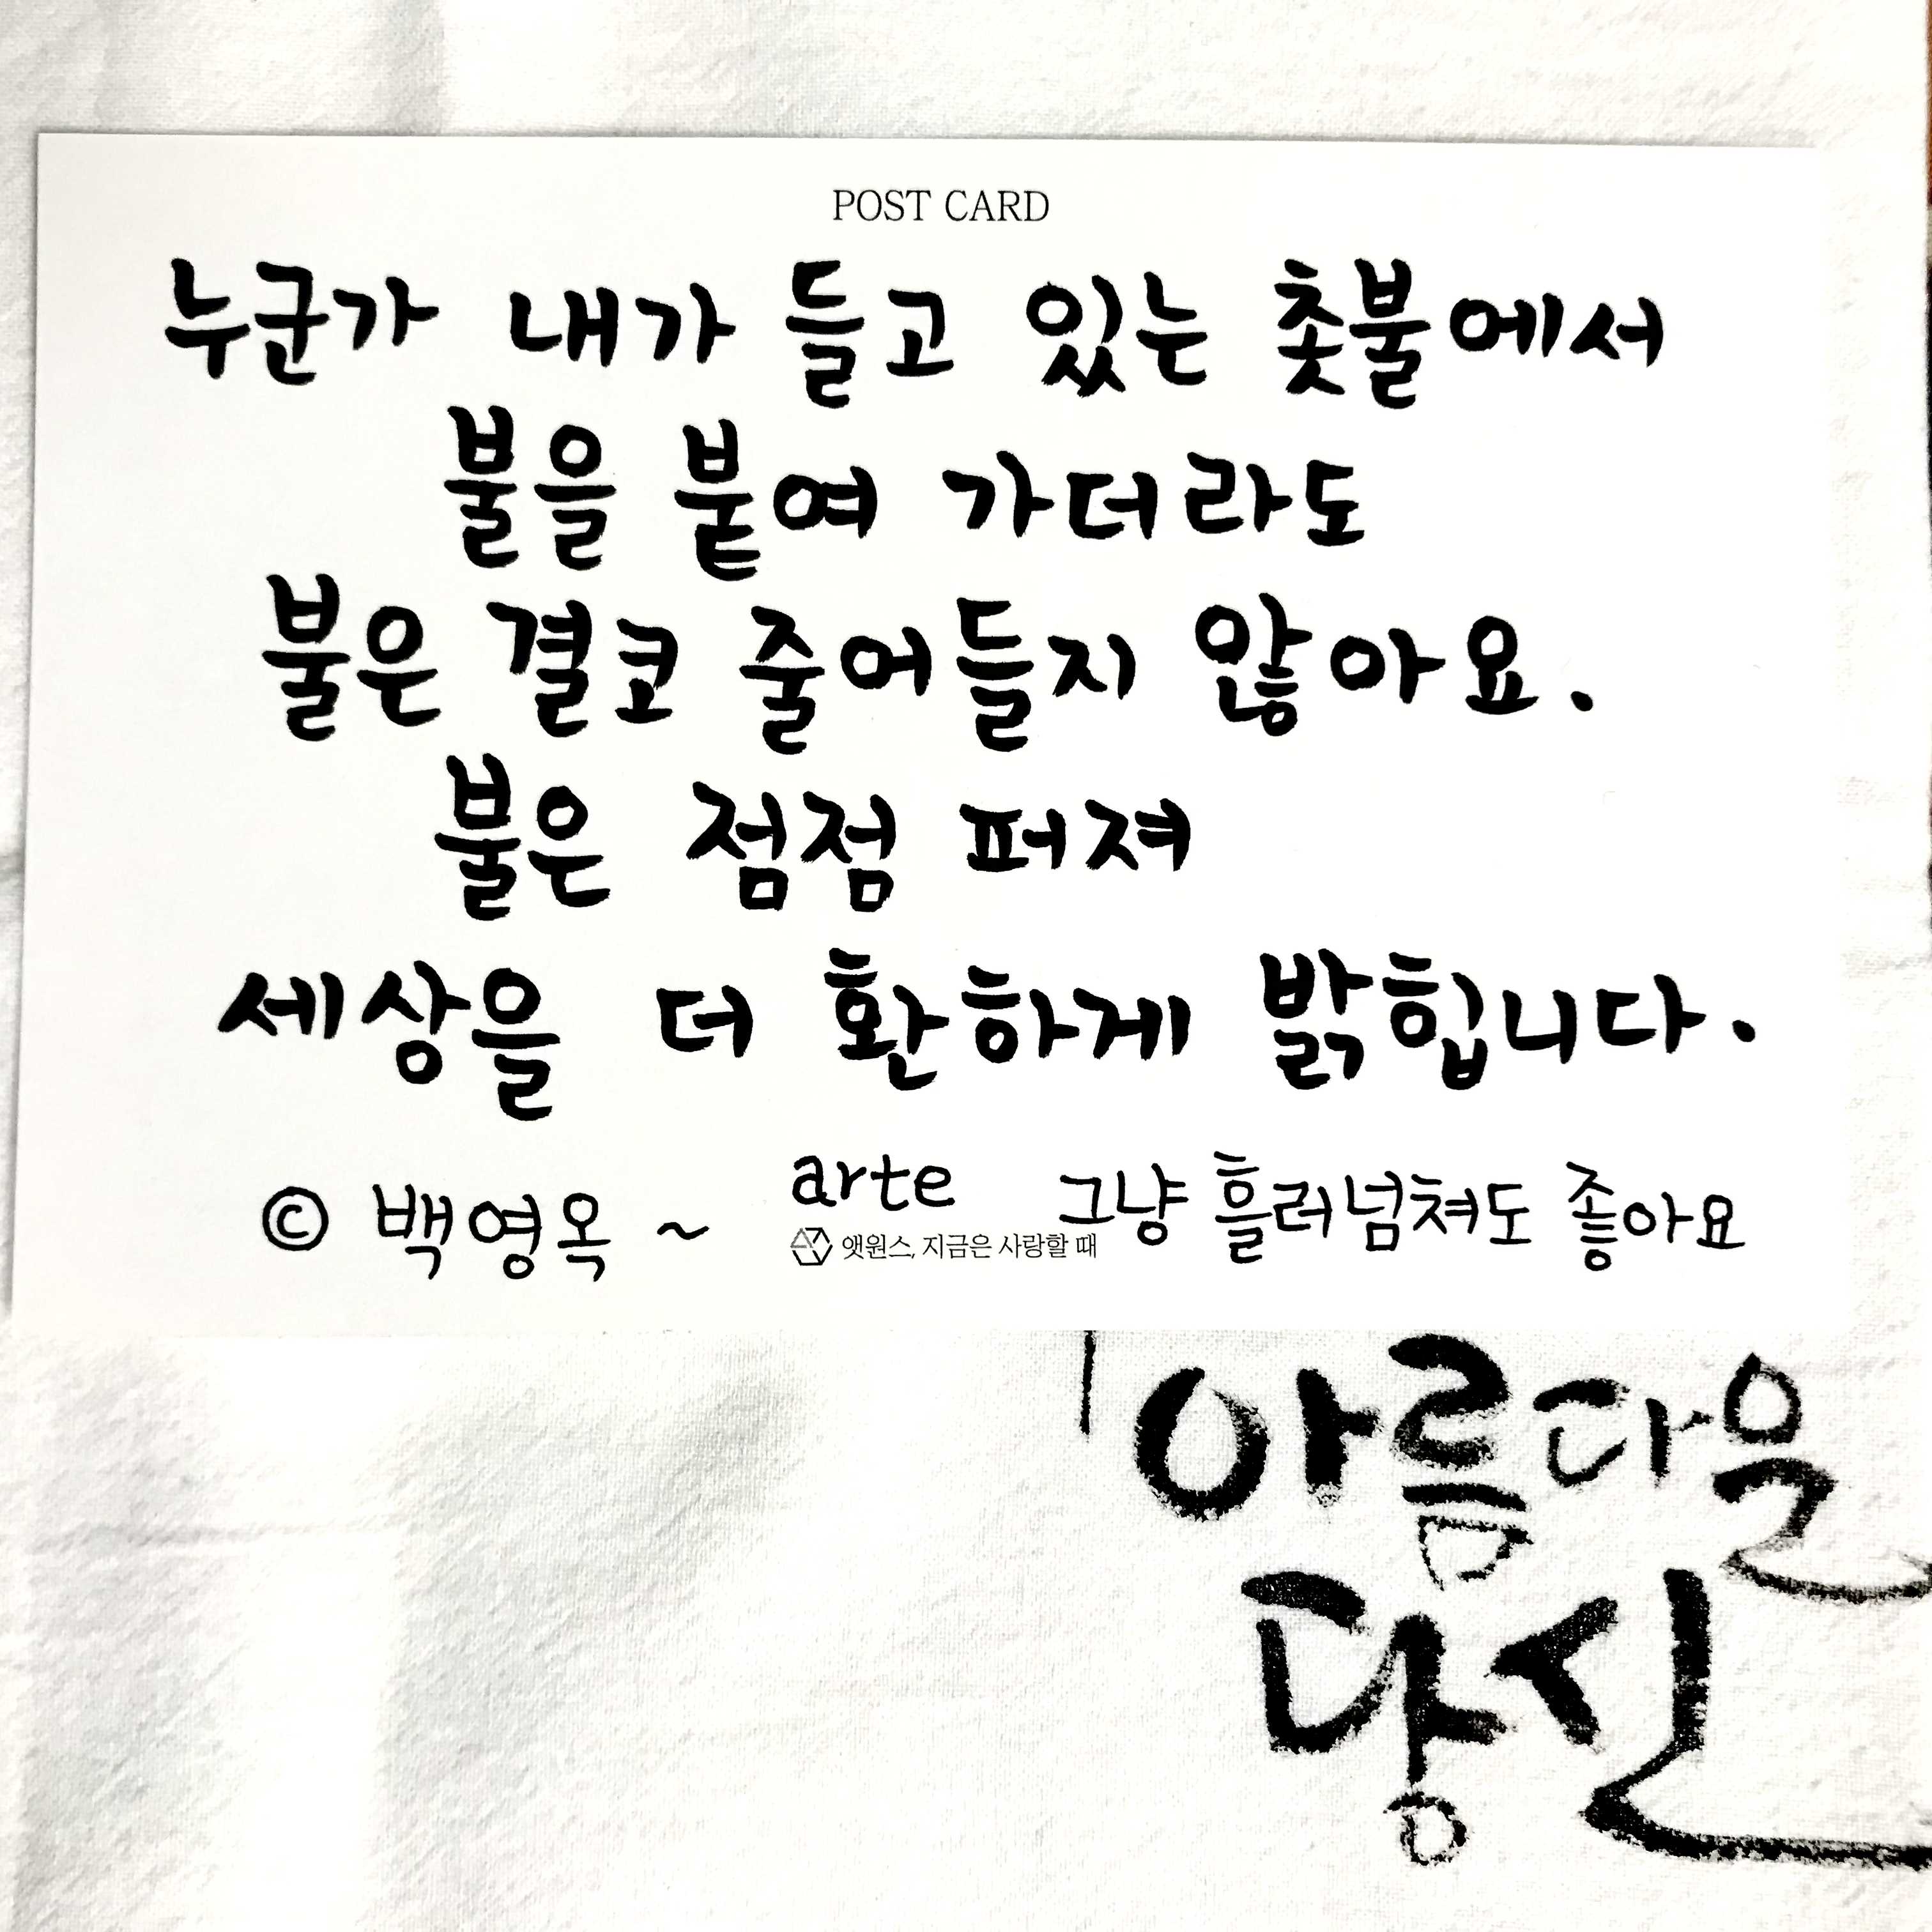 POST CARD
누군가 내가 들고 있는 촛불에서
불을 붙여 가더라도
불은 결코 줄어들지 않아요.
불은 점점 퍼져
세상을 더 환하게 밝힙니다.
© 백영옥 ~ arte 그냥 흘러넘쳐도 좋아요
앳원스, 지금은 사랑할 때
아름다운
당신